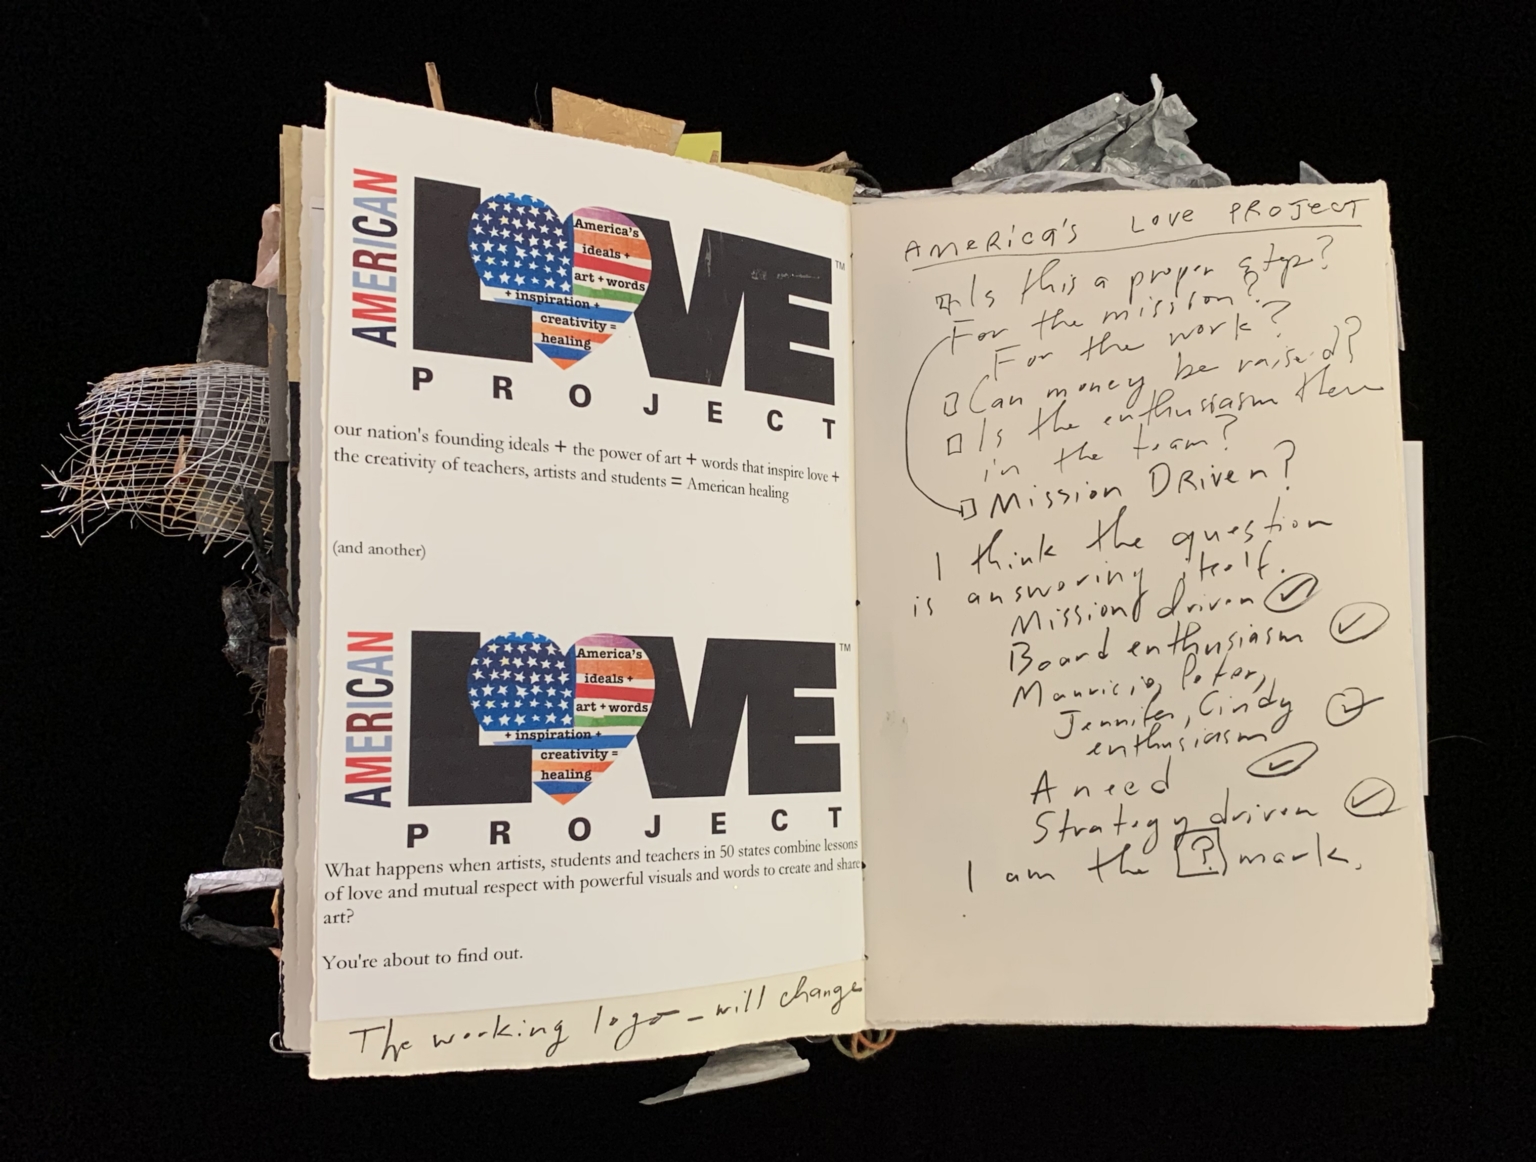 AMERICAN
LOVE
TM
America's
ideals +
art + words
+ inspiration +
creativity =
healing
PROJECT
our nation's founding ideals + the power of art + words that inspire love +
the creativity of teachers, artists and students = American healing
(and another)
AMERICAN
LOVE
TM
America's
ideals +
art + words
+ inspiration +
creativity =
healing
PROJECT
What happens when artists, students and teachers in 50 states combine lessons
of love and mutual respect with powerful visuals and words to create and share
art?
You're about to find out.
The working logo - will change
AMERICA'S LOVE PROJECT
Is this a proper step?
For the mission?
For the work?
Can money be raised?
Is the enthusiasm there
in the team?
MISSION DRIVEN?
I think the question
is answering itself.
Mission driven
Board enthusiasm
Mauricio, Peter,
Jennifer, Cindy
enthusiasm
A need
Strategy driven
I am the ? mark.